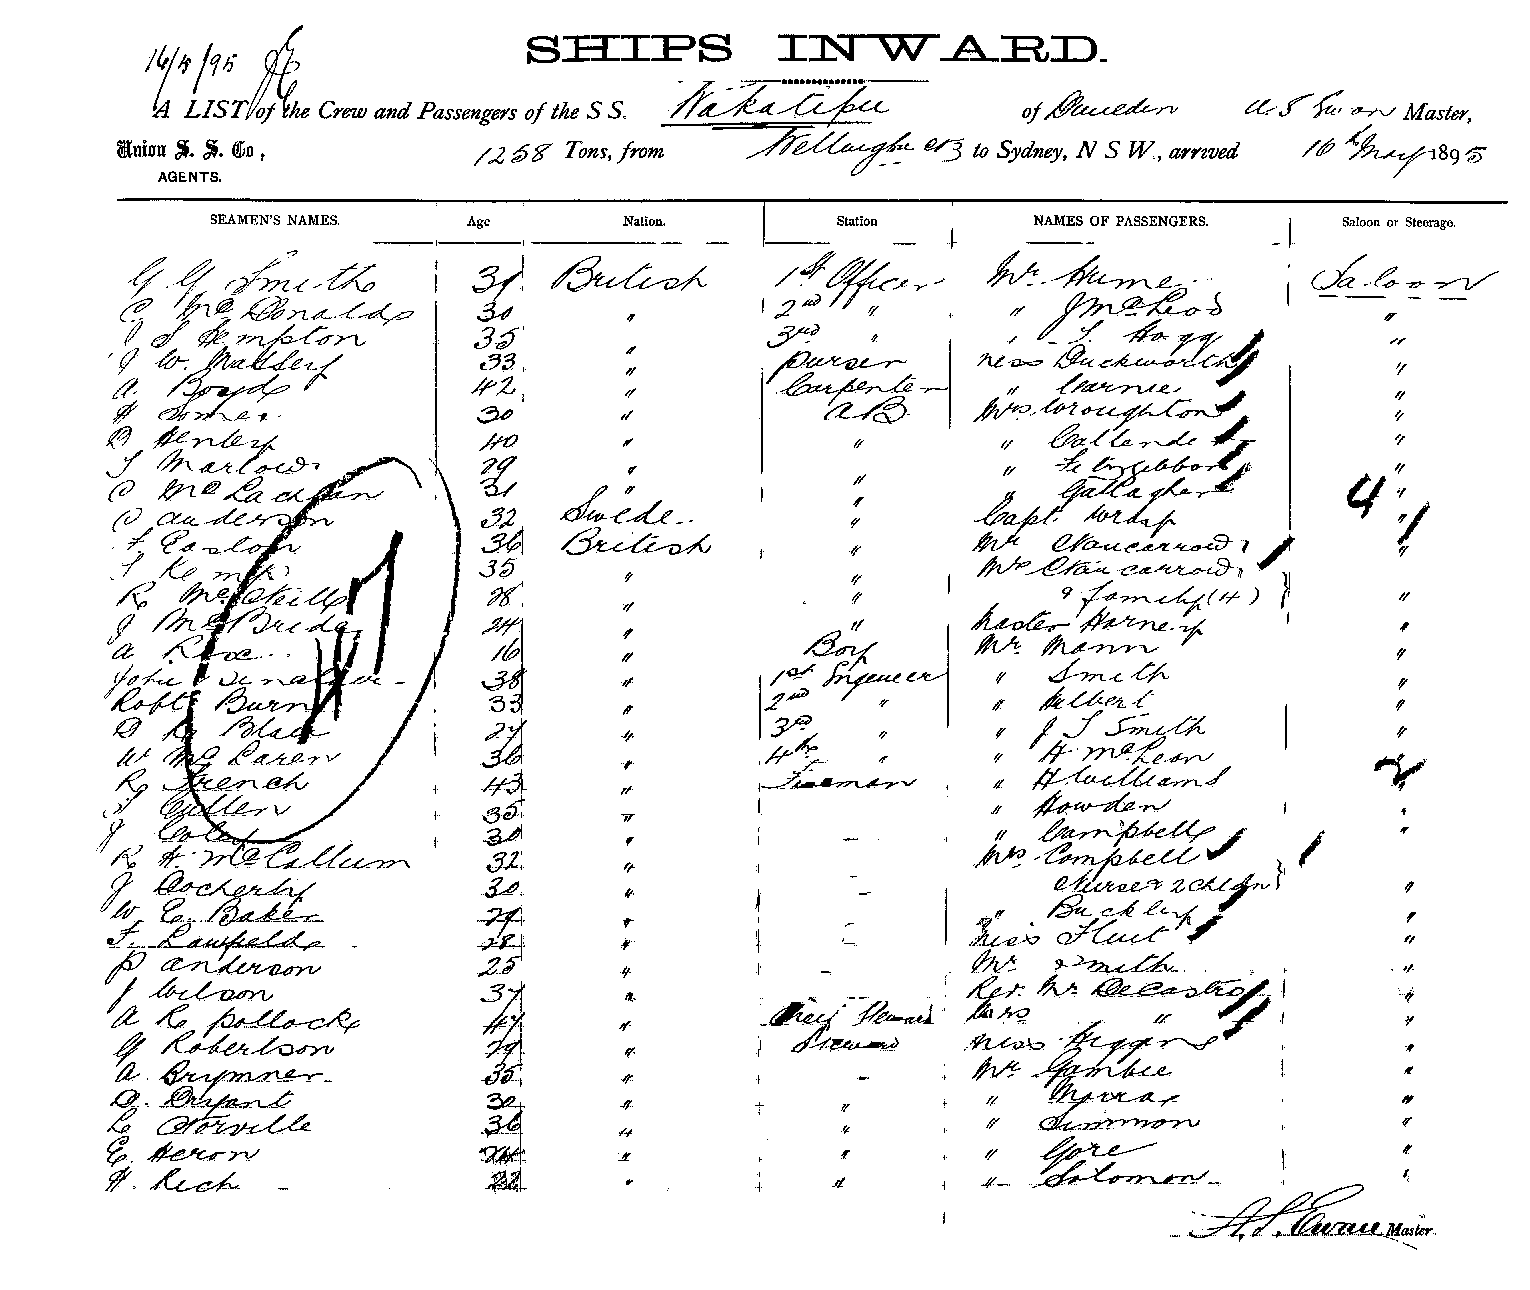 SHIPS INWARD.
16/5/95
A LIST of the Crew and Passengers of the S S. Wakatipu of Dunedin A S Ewan Master,
Union S. S. Co, 1258 Tons, from Wellington NZ to Sydney, N S W., arrived 16th May 1895
AGENTS.
SEAMEN'S NAMES. Age Nation. Station NAMES OF PASSENGERS. Saloon or Steerage.
G G Smith British 1st Officer Mr Hume Saloon
C McDonald 30 " 2nd " " J McLeod "
J S Hempton 35 " 3rd " T. Hogg "
J W. Massey 33 " Purser Miss Duckworth "
A. Boyd 42 " Carpenter " "
H 30 " AB Mrs Wroughton "
D Henley 40 " " " "
T Marlow 29 " " " Fitzgibbon "
D McLachlan 31 " " " Gallagher 4 "
O Anderson 32 Swede " Capt. Wray "
F. Easton 36 British " Mr Nancarrow "
T Kemp 35 " " Mrs Nancarrow
R McNeill 28 " " & family (4) "
J McBride 24 " " Master Harney "
A 16 " Boy Mr. Mann "
John Sinclair 38 " 1st Engineer " Smith "
Robt Burn 33 " 2nd " " Albert "
D R Blair 27 " 3rd " " J S Smith "
W McLaren 36 " 4th " " H McLean "
R French 43 " Fireman " H Williams 2 "
T Cullen 35 " " Howden "
J Coles 30 " " Campbell "
R H. McCallum 32 " Mrs Campbell
J Docherty 30 " Nurse & 2 chldn "
W E. Baker 29 " " Buckley "
F. Lawfield 28 " Miss Flint "
P Anderson 25 " Mr Smith "
J Wilson 37 " Rev. Mr DeCastro "
A R Pollock 47 " Chief Steward Mrs " "
G Robertson 29 " Steward Miss Higgins "
A. Brymner 35 " Mr Gambie "
D. Bryant 30 " " " "
L Norville 36 " " " Simmon "
E. Heron 24 " " " Gore "
H. Rich 22 " " " Solomon "
A. S. Ewan Master